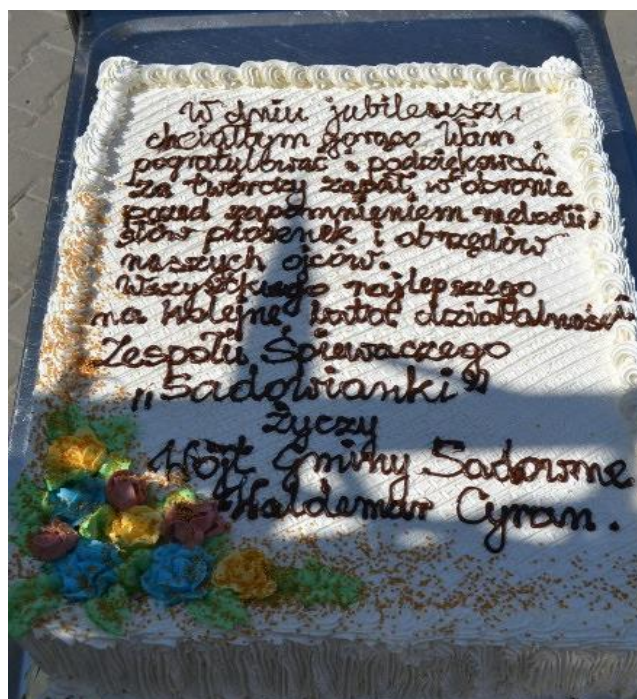 W dniu jubileuszu
chciałbym gorąco Wam
pogratulować i podziękować
za twórczy zapał w obronie
przed zapomnieniem melodii,
słów piosenek i obrzędów
naszych ojców.
Wszystkiego najlepszego
na kolejne lata działalności
Zespołu Śpiewaczego
„Sadowianki”
życzy
Wójt Gminy Sadowne
Waldemar Cyran.